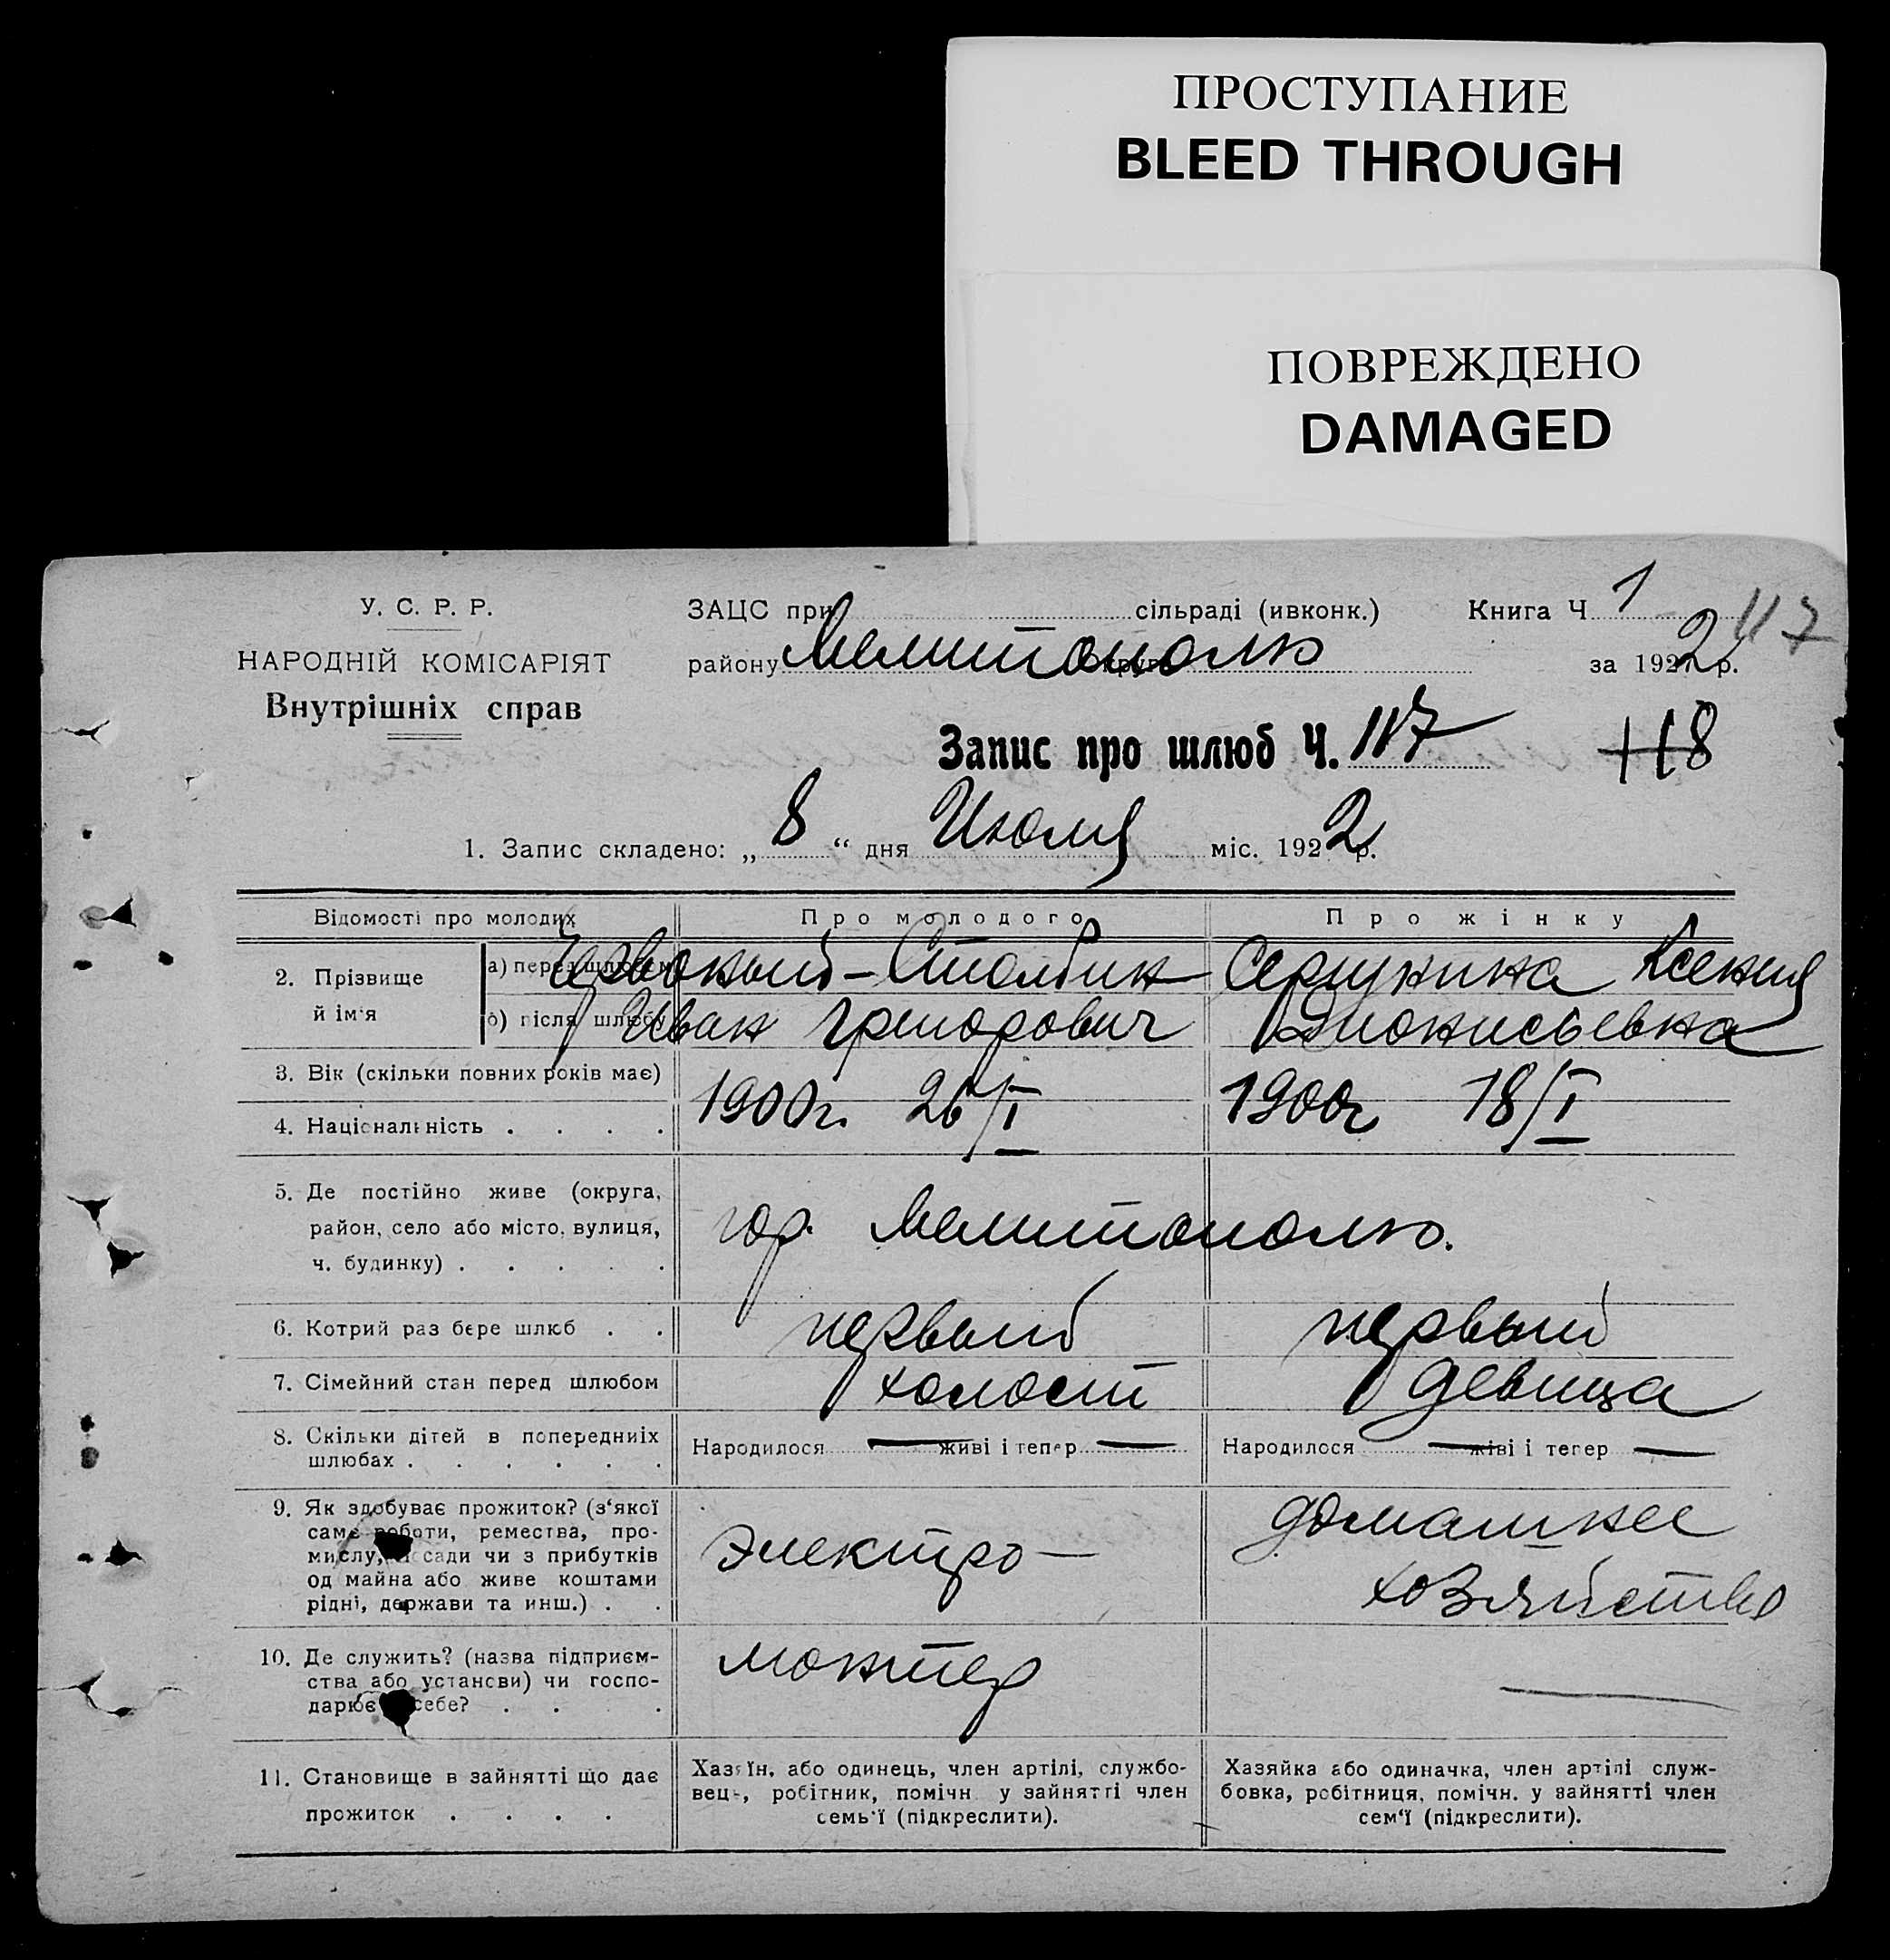 ПРОСТУПАНИЕ
BLEED THROUGH
ПОВРЕЖДЕНО
DAMAGED
У. С. Р. Р.
НАРОДНІЙ КОМІСАРІЯТ
Внутрішніх справ
ЗАЦС при сільраді (ивконк.)
району Мелитополь
Книга Ч. 1
за 1922 р.
117
Запис про шлюб Ч. 117
118
1. Запис складено: „ 8 “ дня Июля міс. 1922 р.
Відомості про молодих Про молодого Про жінку
2. Прізвище й ім'я
а) перед шлюбом -Столбин Ксения
б) після шлюбу Иван Григорович Дионисьевна
3. Вік (скільки повних років має)
4. Національність . . . .
1900г. 26/I 1900г 18/I
5. Де постійно живе (округа,
район, село або місто, вулиця,
ч. будинку) . . . . .
гор. Мелитополь.
6. Котрий раз бере шлюб . . первый первый
7. Сімейний стан перед шлюбом холост девица
8. Скільки дітей в попередніх
шлюбах . . . . . .
Народилося — живі і тепер — Народилося — живі і тепер —
9. Як здобуває прожиток? (з'якої
саме роботи, ремества, про-
мислу, посади чи з прибутків
од майна або живе коштами
рідні, держави та инш.) . .
электро- домашнее
хозяйство
10. Де служить? (назва підприєм-
ства або установи) чи госпо-
дарює себе? . . . .
монтер —
11. Становище в зайнятті що дає
прожиток . . . .
Хазяїн, або одинець, член артілі, службо-
вець, робітник, помічн. у зайнятті член
семь'ї (підкреслити).
Хазяйка або одиначка, член артілі служ-
бовка, робітниця, помічн. у зайнятті член
сем'ї (підкреслити).